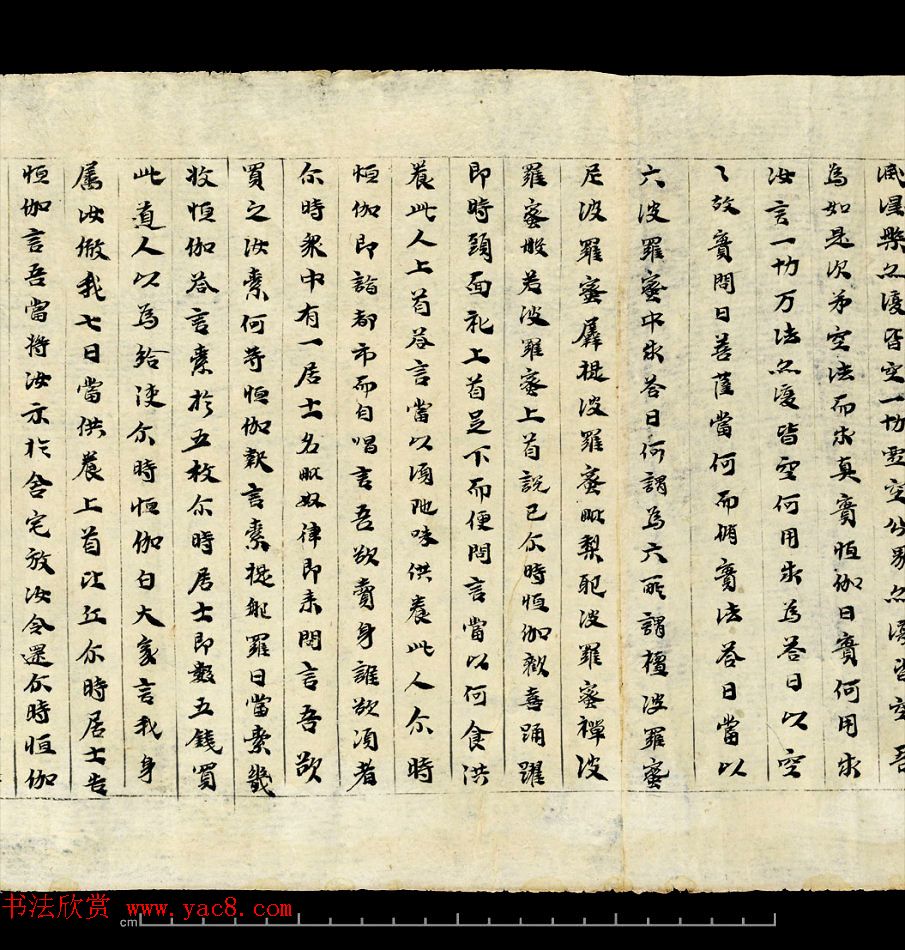 無復皆空一切虛空
為如是次苐空法而求真實恒伽曰實何用求
汝言一切万法無復皆空何用求為荅曰以空
〻故實問曰菩薩當何而脩實法荅曰當以
六波羅蜜中求荅曰何謂為六所謂檀波羅蜜
尼波羅蜜羼提波羅蜜毗梨耶波羅蜜禪波
羅蜜般若波羅蜜上首說已尒時恒伽歡喜踊躍
即時頭面礼上首足下而便問言當以何食洪
養此人上首荅言當以湏陁味供養此人尒時
恒伽即詣都市而自唱言吾欲賣身誰欲湏者
尒時衆中有一居士名毗奴律即来問言吾欲
買之汝索何等恒伽報言索提毗羅曰當索幾
枚恒伽荅言索於五枚尒時居士即數五錢買
此道人以為給使尒時恒伽白大家言我身
属汝假我七日當供養上首比丘尒時居士告
恒伽言吾當将汝示於舍宅放汝令還尒時恒伽
书法欣赏 www.yac8.com
cm